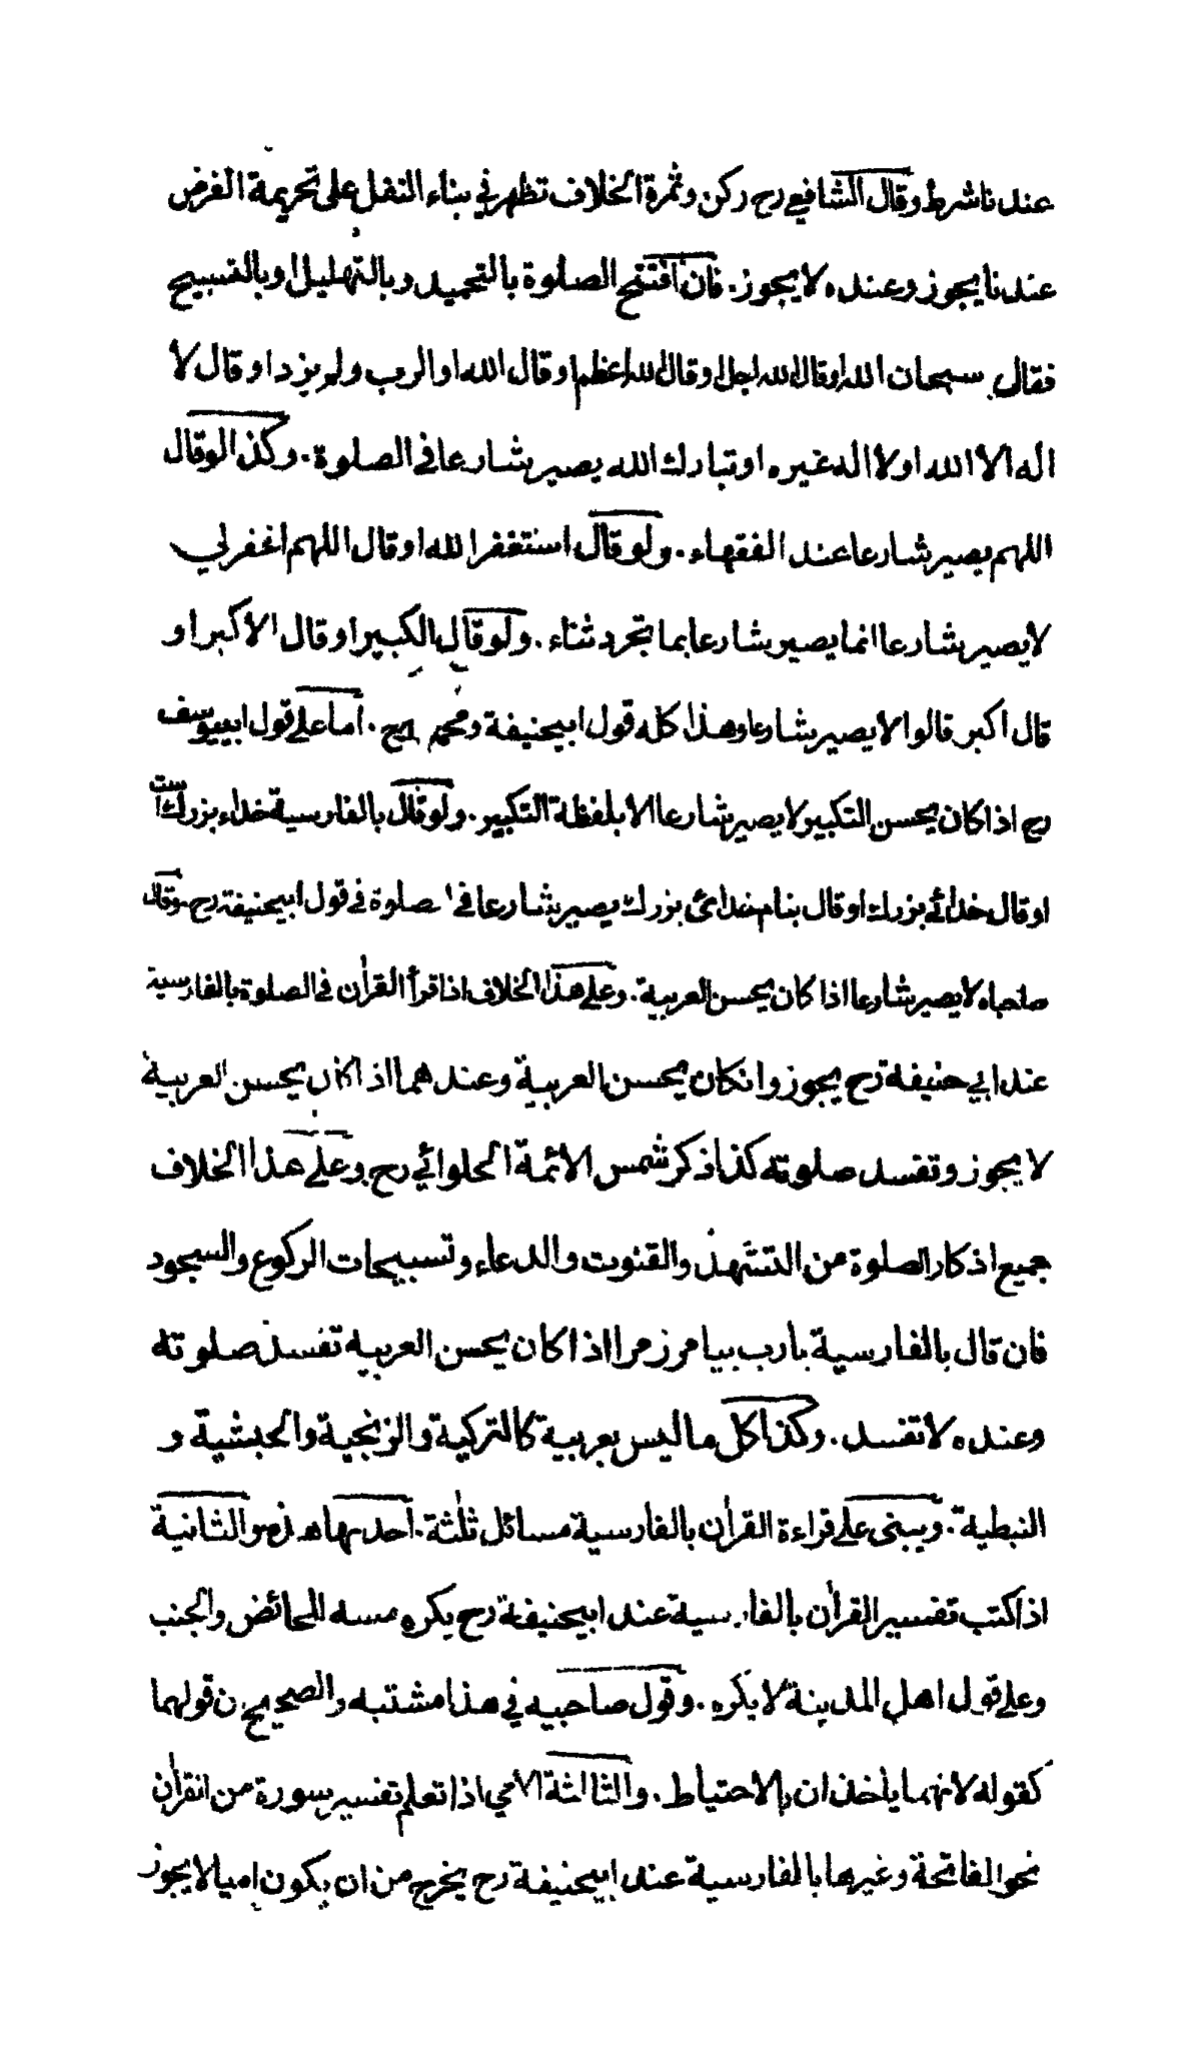 عندنا شرط وقال الشافعي رح ركن وثمرة الخلاف تظهر في بناء النفل على تحريمة الفرض
عندنا يجوز وعنده لا يجوز. فان افتتح الصلوة بالتحميد وبالتهليل او بالتسبيح
فقال سبحان الله او قال الله اجل او قال الله اعظم او قال الله او الرب ولم يزد او قال لا
اله الا الله او لا اله غيره او تبارك الله يصير شارعا في الصلوة. وكذا لو قال
اللهم يصير شارعا عند الفقهاء. ولو قال استغفر الله او قال اللهم اغفر لي
لا يصير شارعا انما يصير شارعا بما تجرد ثناء. ولو قال الكبير او قال الاكبر او
قال اكبر قالوا لا يصير شارعا وهذا كله قول ابيحنيفة ومحمد رح. اما على قول ابييوسف
رح اذا كان يحسن التكبير لا يصير شارعا الا بلفظة التكبير. ولو قال بالفارسية خداء بزرك است
او قال خدائے بزرك او قال بنام خدائ بزرك يصير شارعا في صلوة في قول ابيحنيفة رح وقال
صاحباه لا يصير شارعا اذا كان يحسن العربية. وعلى هذا الخلاف اذا قرأ القرأن في الصلوة بالفارسية
عند ابي حنيفة رح يجوز وانكان يحسن العربية وعندهما اذا كان يحسن العربية
لا يجوز وتفسد صلوته كذا ذكر شمس الائمة الحلوائي رح وعلى هذا الخلاف
جميع اذكار الصلوة من التشهد والقنوت والدعاء وتسبيحات الركوع والسجود
فان قال بالفارسية يارب بيامرز مرا اذا كان يحسن العربية تفسد صلوته
وعنده لا تفسد. وكذا كل ما ليس بعربية كالتركية والزنجية والحبشية و
النبطية. ويبنى على قراءة القرأن بالفارسية مسائل ثلثة. احديها هذه والثانية
اذا كتب تفسير القرأن بالفارسية عند ابيحنيفة رح يكره مسه للحائض والجنب
وعلى قول اهل المدينة لا يكره. وقول صاحبيه في هذا مشتبه والصحيح ان قولهما
كقوله لانهما ياخذان بالاحتياط. والثالثة الامي اذا تعلم تفسير سورة من القرأن
نحو الفاتحة وغيرها بالفارسية عند ابيحنيفة رح يخرج من ان يكون اميا لا يجوز